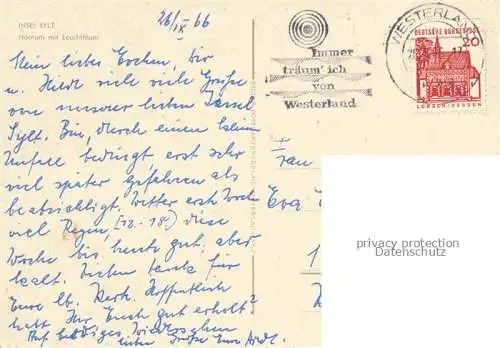 INSEL SYLT
Hörnum mit Leuchtturm
26/IX 66
Mein liebes Evchen, Dir
u. viele viele Grüße
von unserer lieben Insel
Sylt. Bin, durch einen kleinen
Unfall bedingt erst sehr
viel später gefahren als
beabsichtigt. Wetter erste Woche
viel Regen, (12.-18.) diese
Woche bis heute gut, aber
kalt. Vielen Dank für
Eure lb. Karte. Hoffentlich
habt Ihr Euch gut erholt?
Auf baldiges Wiedersehen
liebe Grüße Eure
Immer
träum' ich
von
Westerland
WESTERLAND
DEUTSCHE BUNDESPOST
20
LORSCH/HESSEN
Frau
Eva
privacy protection
Datenschutz